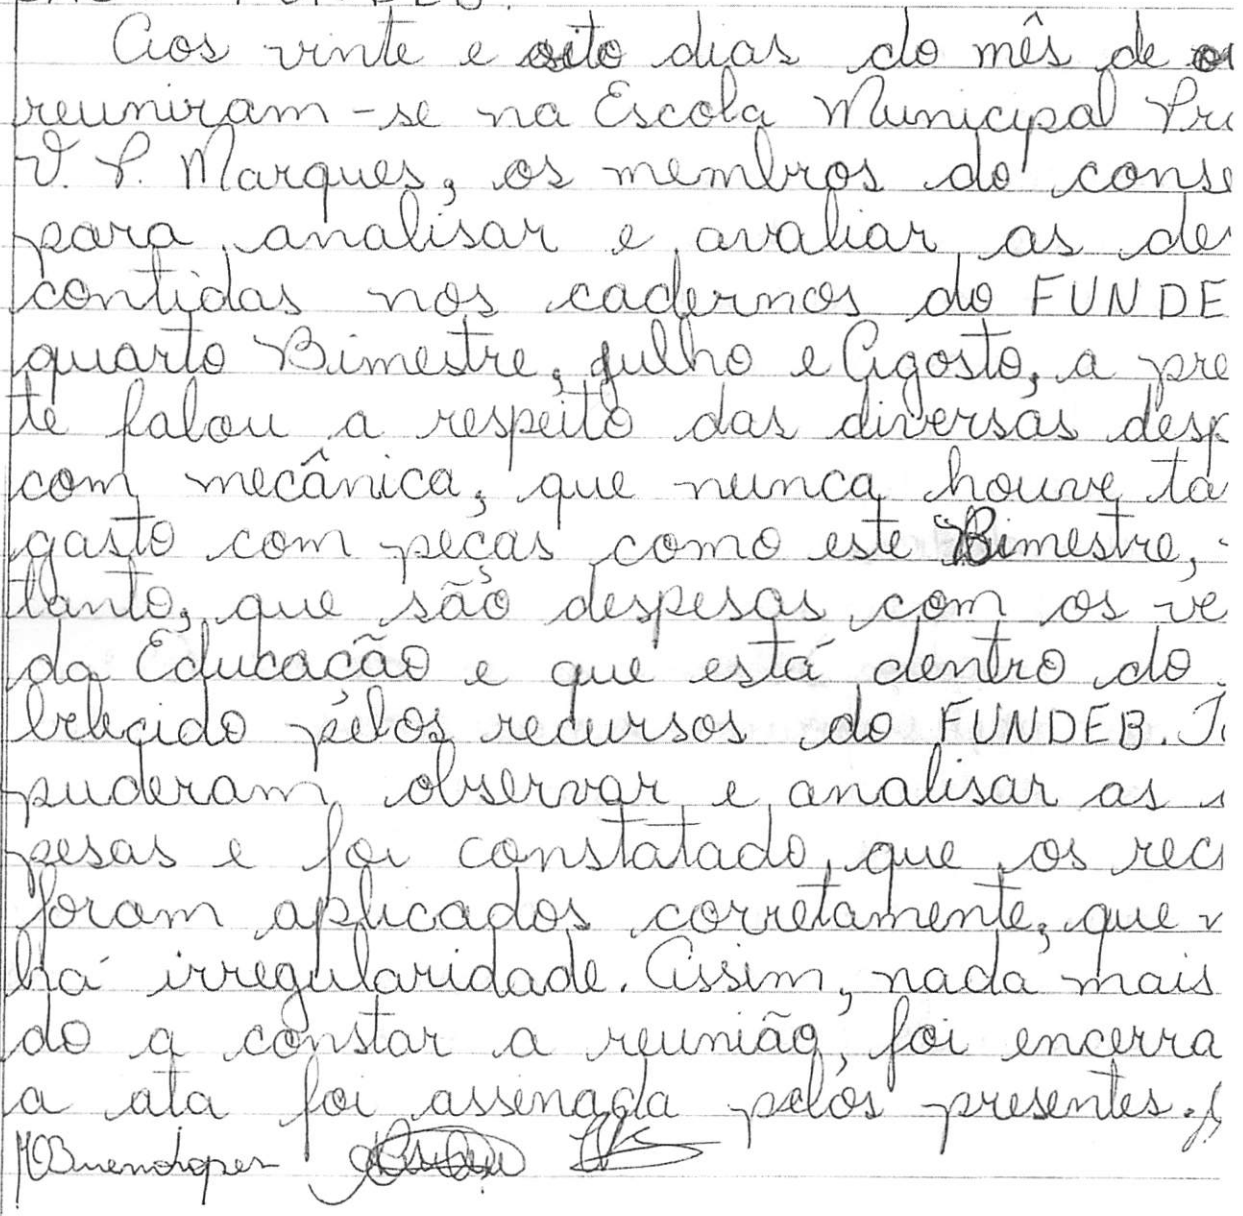 Aos vinte e oito dias do mês de
reuniram-se na Escola Municipal
V. P. Marques, os membros do conse
para analisar e avaliar as de
contidas nos cadernos do FUNDE
quarto Bimestre, Julho e Agosto, a pre
te falou a respeito das diversas desp
com mecânica, que nunca houve ta
gasto com peças como este Bimestre,
tanto, que são despesas com os ve
da Educação e que está dentro do
belecido pelos recursos do FUNDEB. To
puderam observar e analisar as
pesas e foi constatado que os rec
foram aplicados corretamente, que
há irregularidade. Assim, nada mais
do a constar a reunião, foi encerra
a ata foi assinada pelos presentes.